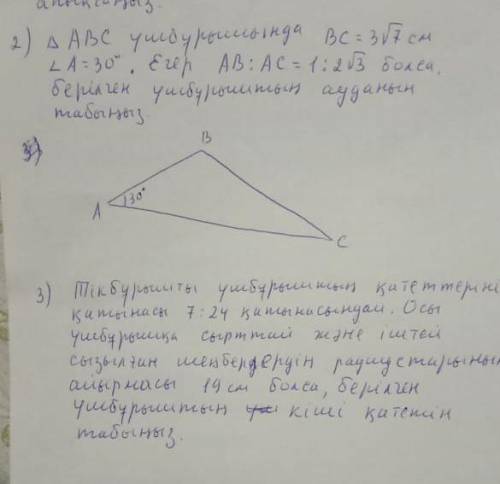 анықтаңыз.
2) △ ABC үшбұрышында BC = 3√7 см
∠A = 30°. Егер AB : AC = 1 : 2√3 болса,
берілген үшбұрыштың ауданын
табыңыз.
B
A 30°
C
3) Тікбұрышты үшбұрыштың катеттеріні
қатынасы 7 : 24 қатынасындай. Осы
үшбұрышқа сырттай және іштей
сызылған шеңберлердің радиустарының
айырмасы 19 см болса, берілген
үшбұрыштың кіші катетін
табыңыз.